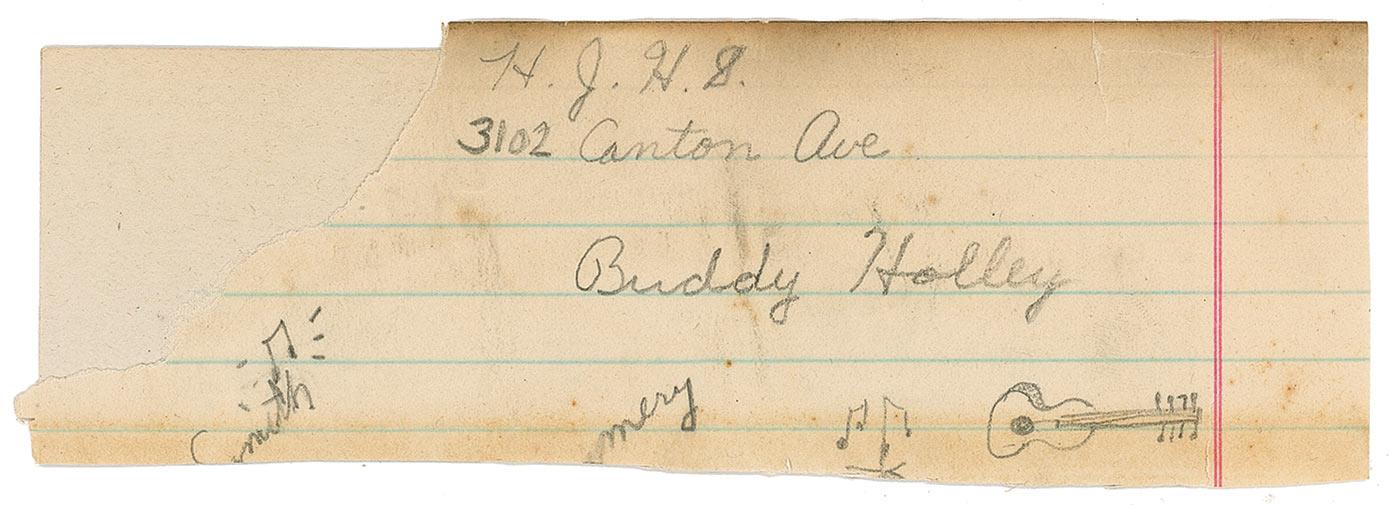 H. J. H. S.
3102 Canton Ave
Buddy Holley
mith
mery